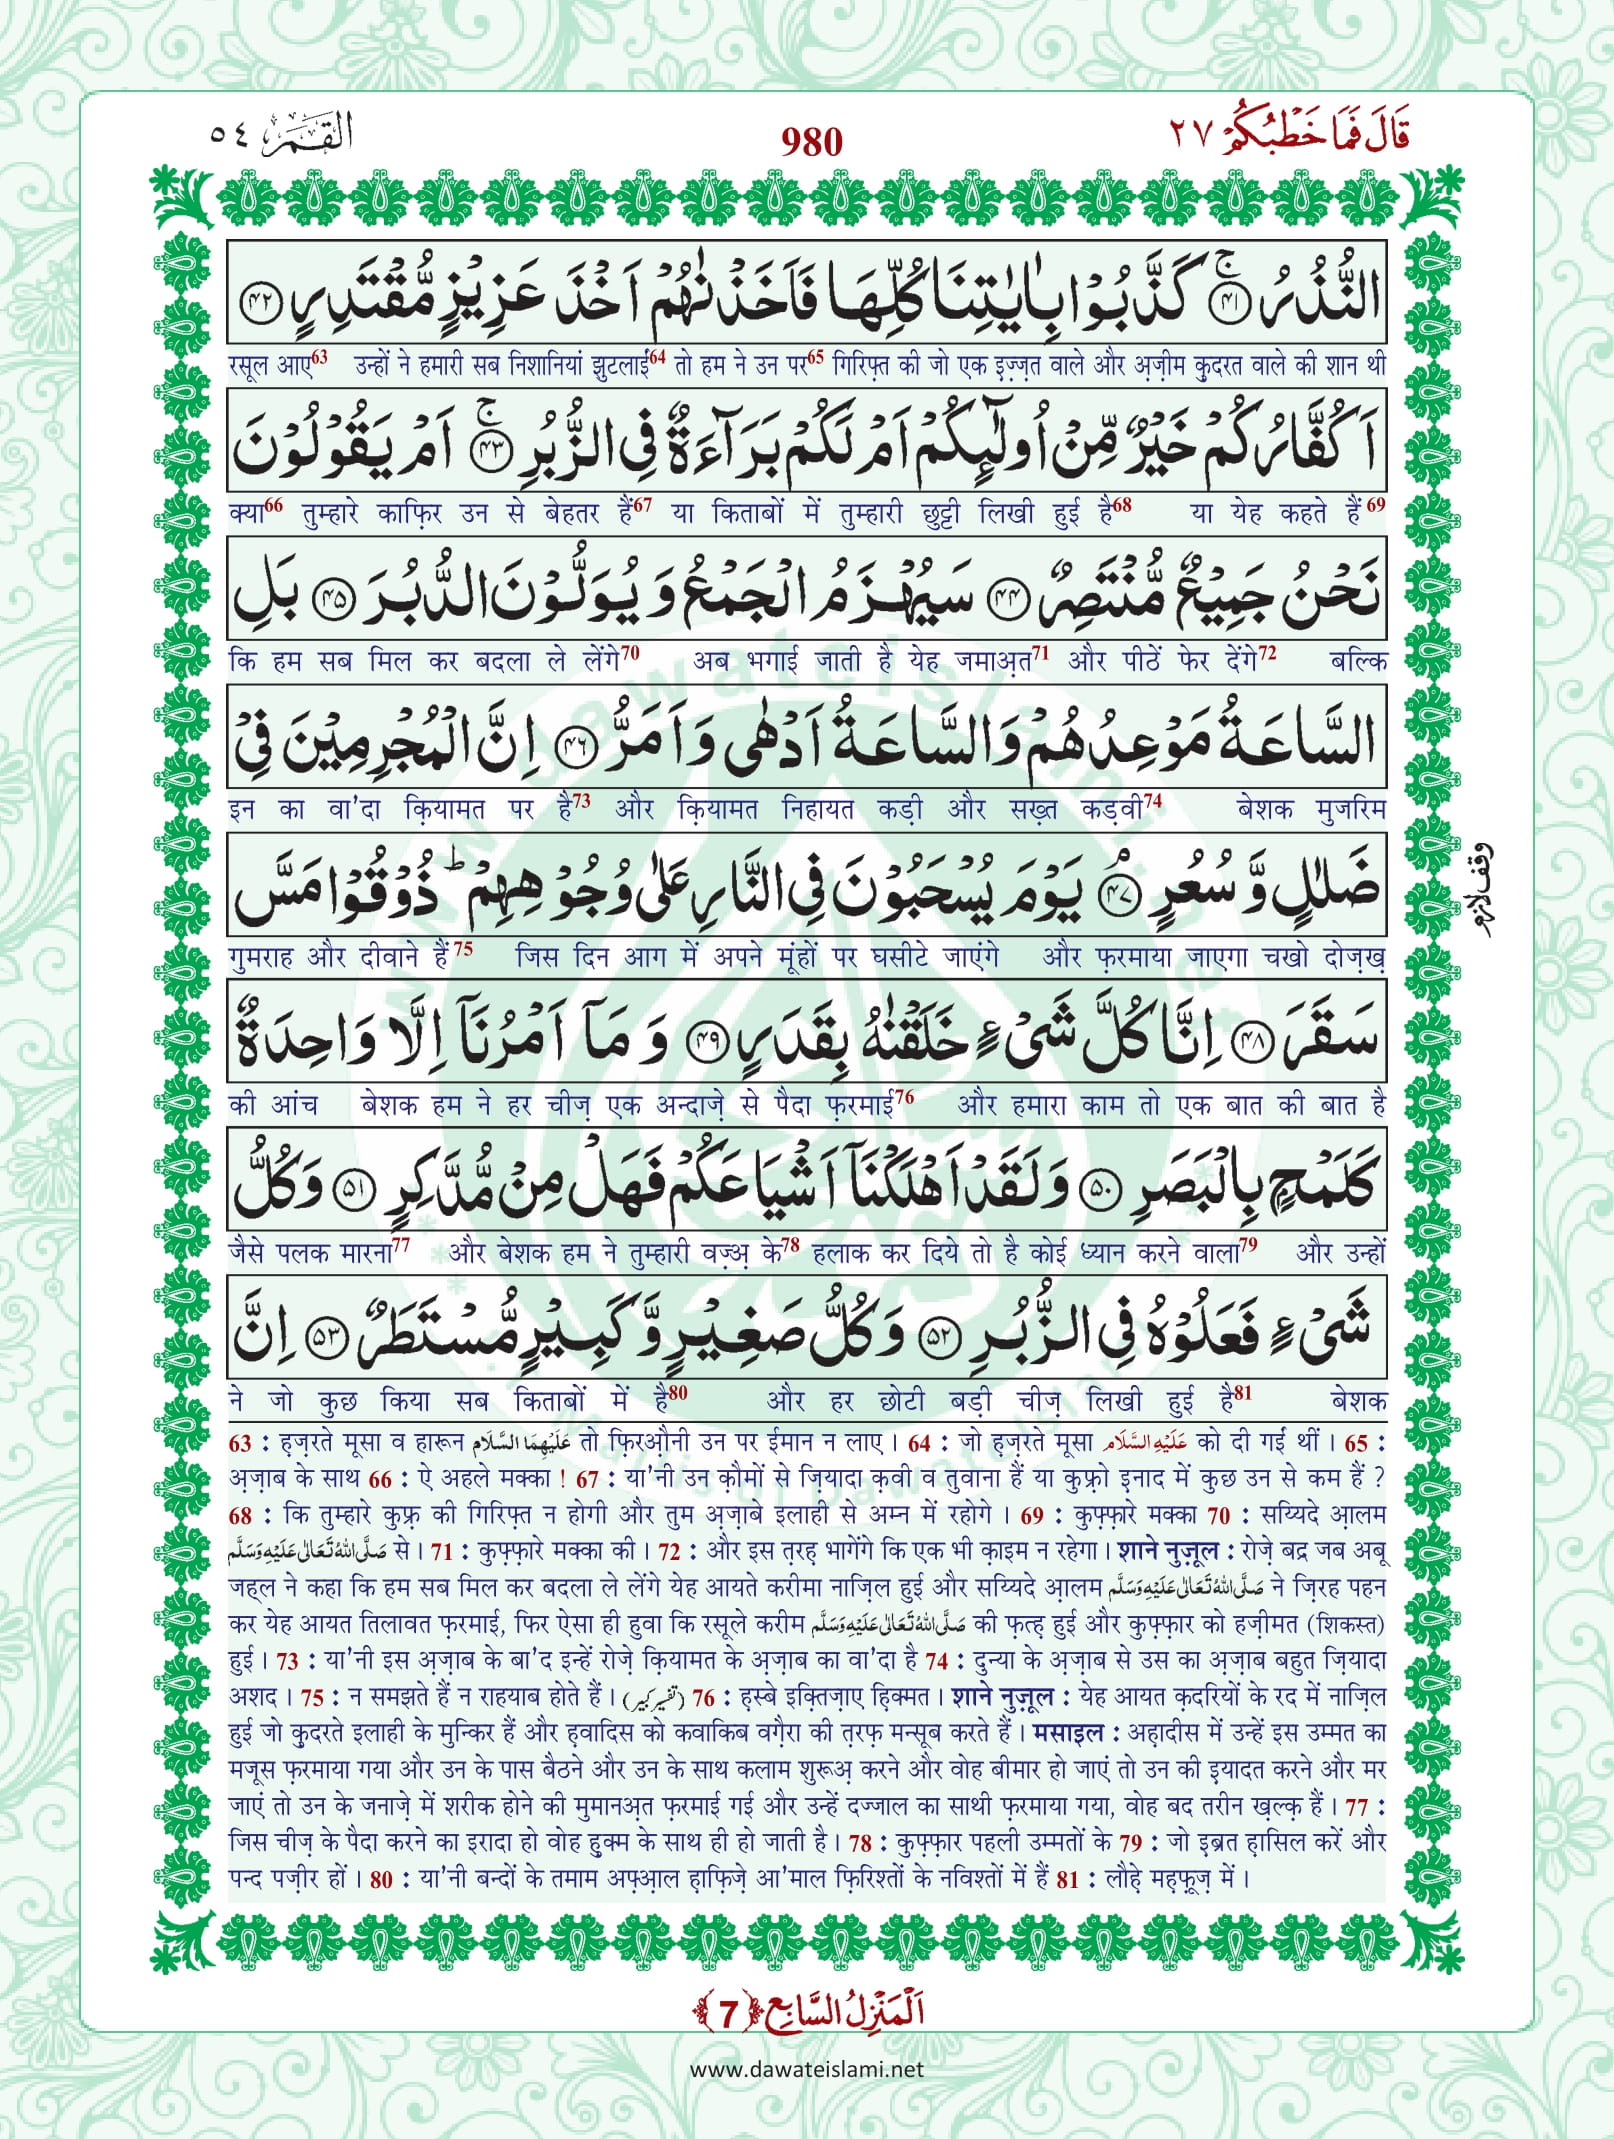 قَالَ فَمَا خَطْبُكُمْ ٢٧
980
القمر ٥٤
النُّذُرُ ۚ﴿۴۱﴾ كَذَّبُوْا بِاٰيٰتِنَا كُلِّهَا فَاَخَذْنٰهُمْ اَخْذَ عَزِيْزٍ مُّقْتَدِرٍ ﴿۴۲﴾
रसूल आए63 उन्हों ने हमारी सब निशानियां झुटलाईं64 तो हम ने उन पर65 गिरिफ़्त की जो एक इज़्ज़त वाले और अ़ज़ीम क़ुदरत वाले की शान थी
اَكُفَّارُكُمْ خَيْرٌ مِّنْ اُولٰٓئِكُمْ اَمْ لَكُمْ بَرَآءَةٌ فِى الزُّبُرِ ۚ﴿۴۳﴾ اَمْ يَقُوْلُوْنَ
क्या66 तुम्हारे काफ़िर उन से बेहतर हैं67 या किताबों में तुम्हारी छुट्टी लिखी हुई है68 या येह कहते हैं69
نَحْنُ جَمِيْعٌ مُّنْتَصِرٌ ﴿۴۴﴾ سَيُهْزَمُ الْجَمْعُ وَ يُوَلُّوْنَ الدُّبُرَ ﴿۴۵﴾ بَلِ
कि हम सब मिल कर बदला ले लेंगे70 अब भगाई जाती है येह जमाअ़त71 और पीठें फेर देंगे72 बल्कि
السَّاعَةُ مَوْعِدُهُمْ وَالسَّاعَةُ اَدْهٰى وَ اَمَرُّ ﴿۴۶﴾ اِنَّ الْمُجْرِمِيْنَ فِىْ
इन का वा’दा क़ियामत पर है73 और क़ियामत निहायत कड़ी और सख़्त कड़वी74 बेशक मुजरिम
ضَلٰلٍ وَّ سُعُرٍ ۘ﴿۴۷﴾ يَوْمَ يُسْحَبُوْنَ فِى النَّارِ عَلٰى وُجُوْهِهِمْ ؕ ذُوْقُوْا مَسَّ
وقف لازم
गुमराह और दीवाने हैं75 जिस दिन आग में अपने मूंहों पर घसीटे जाएंगे और फ़रमाया जाएगा चखो दोज़ख़
سَقَرَ ﴿۴۸﴾ اِنَّا كُلَّ شَىْءٍ خَلَقْنٰهُ بِقَدَرٍ ﴿۴۹﴾ وَ مَآ اَمْرُنَآ اِلَّا وَاحِدَةٌ
की आंच बेशक हम ने हर चीज़ एक अन्दाज़े से पैदा फ़रमाई76 और हमारा काम तो एक बात की बात है
كَلَمْحٍۭ بِالْبَصَرِ ﴿۵۰﴾ وَ لَقَدْ اَهْلَكْنَآ اَشْيَاعَكُمْ فَهَلْ مِنْ مُّدَّكِرٍ ﴿۵۱﴾ وَكُلُّ
जैसे पलक मारना77 और बेशक हम ने तुम्हारी वज़्अ़ के78 हलाक कर दिये तो है कोई ध्यान करने वाला79 और उन्हों
شَىْءٍ فَعَلُوْهُ فِى الزُّبُرِ ﴿۵۲﴾ وَ كُلُّ صَغِيْرٍ وَّ كَبِيْرٍ مُّسْتَطَرٌ ﴿۵۳﴾ اِنَّ
ने जो कुछ किया सब किताबों में है80 और हर छोटी बड़ी चीज़ लिखी हुई है81 बेशक
63 : ह़ज़रते मूसा व हारून عَلَيْهِمَا السَّلَام तो फ़िरऔ़नी उन पर ईमान न लाए । 64 : जो ह़ज़रते मूसा عَلَيْهِ السَّلَام को दी गईं थीं । 65 :
अ़ज़ाब के साथ 66 : ऐ अहले मक्का ! 67 : या’नी उन क़ौमों से ज़ियादा क़वी व तुवाना हैं या कुफ़्रो इनाद में कुछ उन से कम हैं ?
68 : कि तुम्हारे कुफ़्र की गिरिफ़्त न होगी और तुम अ़ज़ाबे इलाही से अम्न में रहोगे । 69 : कुफ़्फ़ारे मक्का 70 : सय्यिदे आ़लम
صَلَّى اللهُ تَعَالٰى عَلَيْهِ وَسَلَّم से। 71 : कुफ़्फ़ारे मक्का की । 72 : और इस त़रह़ भागेंगे कि एक भी क़ाइम न रहेगा। शाने नुज़ूल : रोज़े बद्र जब अबू
जह्ल ने कहा कि हम सब मिल कर बदला ले लेंगे येह आयते करीमा नाज़िल हुई और सय्यिदे आ़लम صَلَّى اللهُ تَعَالٰى عَلَيْهِ وَسَلَّم ने ज़िरह पहन
कर येह आयत तिलावत फ़रमाई, फिर ऐसा ही हुवा कि रसूले करीम صَلَّى اللهُ تَعَالٰى عَلَيْهِ وَسَلَّم की फ़त्ह़ हुई और कुफ़्फ़ार को हज़ीमत (शिकस्त)
हुई । 73 : या’नी इस अ़ज़ाब के बा’द इन्हें रोज़े क़ियामत के अ़ज़ाब का वा’दा है 74 : दुन्या के अ़ज़ाब से उस का अ़ज़ाब बहुत ज़ियादा
अशद । 75 : न समझते हैं न राहयाब होते हैं । (تفسیر کبیر) 76 : ह़स्बे इक़्तिज़ाए ह़िक्मत । शाने नुज़ूल : येह आयत क़दरियों के रद में नाज़िल
हुई जो क़ुदरते इलाही के मुन्किर हैं और ह़वादिस को कवाकिब वग़ैरा की त़रफ़ मन्सूब करते हैं । मसाइल : अह़ादीस में उन्हें इस उम्मत का
मजूस फ़रमाया गया और उन के पास बैठने और उन के साथ कलाम शुरूअ़ करने और वोह बीमार हो जाएं तो उन की इयादत करने और मर
जाएं तो उन के जनाज़े में शरीक होने की मुमानअ़त फ़रमाई गई और उन्हें दज्जाल का साथी फ़रमाया गया, वोह बद तरीन ख़ल्क़ हैं । 77 :
जिस चीज़ के पैदा करने का इरादा हो वोह हुक्म के साथ ही हो जाती है । 78 : कुफ़्फ़ार पहली उम्मतों के 79 : जो इब्रत ह़ासिल करें और
पन्द पज़ीर हों । 80 : या’नी बन्दों के तमाम अफ़्आ़ल ह़ाफ़िज़े आ’माल फ़िरिश्तों के नविश्तों में हैं 81 : लौह़े मह़फ़ूज़ में ।
اَلْمَنْزِلُ السَّابِع ﴿7﴾
www.dawateislami.net